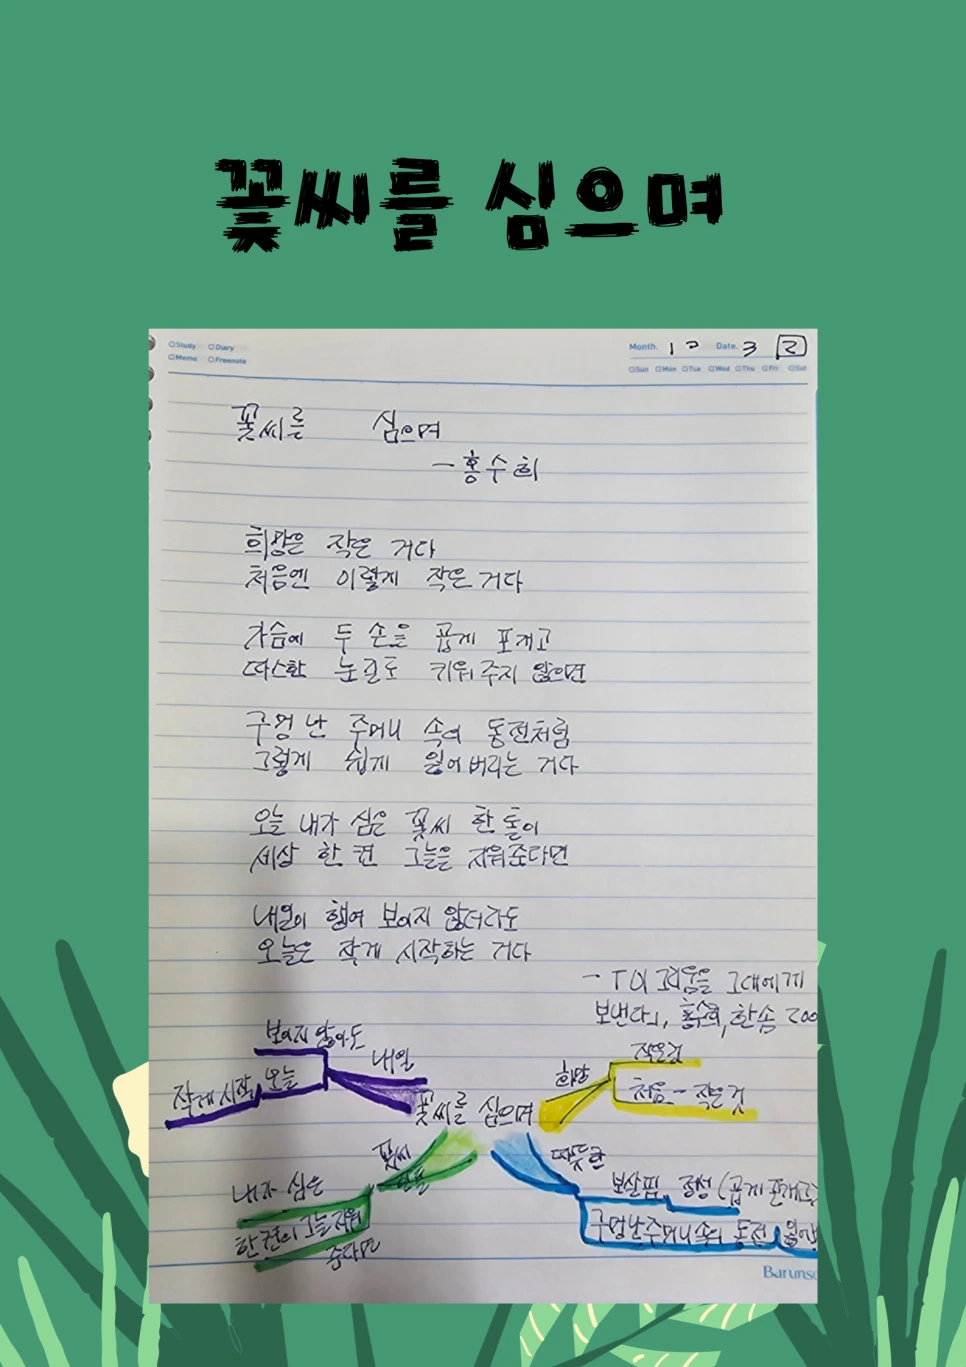 꽃씨를 심으며
Study Diary
Memo Freenote
Month. 12 Date. 3 2
Sun Mon Tue Wed Thu Fri Sat
꽃씨를 심으며
- 홍수희
희망은 작은 거다
처음엔 이렇게 작은 거다
가슴에 두 손을 곱게 포개고
따스한 눈길로 키워주지 않으면
구멍 난 주머니 속의 동전처럼
그렇게 쉽게 잃어버리는 거다
오늘 내가 심은 꽃씨 한 톨이
세상 한 켠 그늘을 지워준다면
내일이 행여 보이지 않더라도
오늘은 작게 시작하는 거다
- 「이 그리움을 그대에게
보낸다」, 홍수희, 한솜 200
보이지 않아도
내일
오늘
작게 시작
꽃씨를 심으며
희망
작은 것
처음 - 작은 것
꽃씨
한 톨
내가 심은
한 켠의 그늘 지워
준다면
따뜻한
보살핌, 정성 (곱게 포개고)
구멍 난 주머니 속의 동전